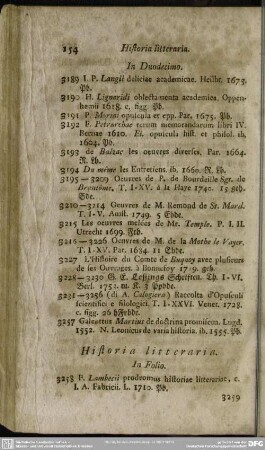 154 Historia litteraria.
In Duodecimo.
3189 I. P. Langii deliciae academicae. Heilbr. 1675.
Pb.
3190 H. Lignaridi oblectamenta academica. Oppen-
hemii 1618. c. figg. Pb.
3191 P. Morini opuscula et epp. Par. 1675. Pb.
3192 F. Petrarchae rerum memorandarum libri IV.
Bernae 1610. Ei. opuscula hist. et philol. ib.
1604. Pb.
3193 de Balzac les oeuvres diverses, Par. 1664.
R. Lb.
3194 Du même les Entretiens. ib. 1660. R. Lb.
3195—3209 Oeuvres de P. de Bourdeille Sgr. de
Brantôme, T. I-XV. à la Haye 1740. 15 geh.
Bde.
3210—3214 Oeuvres de M. Remond de St. Mard.
T. I-V. Amst. 1749. 5 Ebde.
3215 Les oeuvres melées de Mr. Temple. P. I. II.
Utrecht 1699. Frb.
3216—3226 Oeuvres de M. de la Mothe le Vayer.
T. I-XV. Par. 1684. 11 Ebde.
3227 L'Histoire du Comte de Buquoy avec plusieurs
de ses Ouvrages. à Bonnefoy 1719. grb.
3228—3230 G. E. Lessings Schriften. Th. I-VI.
Berl. 1753. m. K. 3 Ppbde.
3231—3256 (di A. Calogiera) Raccolta d'Opusculi
scientifici e filologici. T. I-XXVI. Venez. 1728.
c. figg. 26 hFrbde.
3257 Galeottus Martius de doctrina promiscua. Lugd.
1552. N. Leonicus de varia historia. ib. 1555. Pb.
Historia litteraria.
In Folio.
3258 P. Lambecii prodromus historiae litterariae, c.
I. A. Fabricii. L. 1710. Pb.
3259